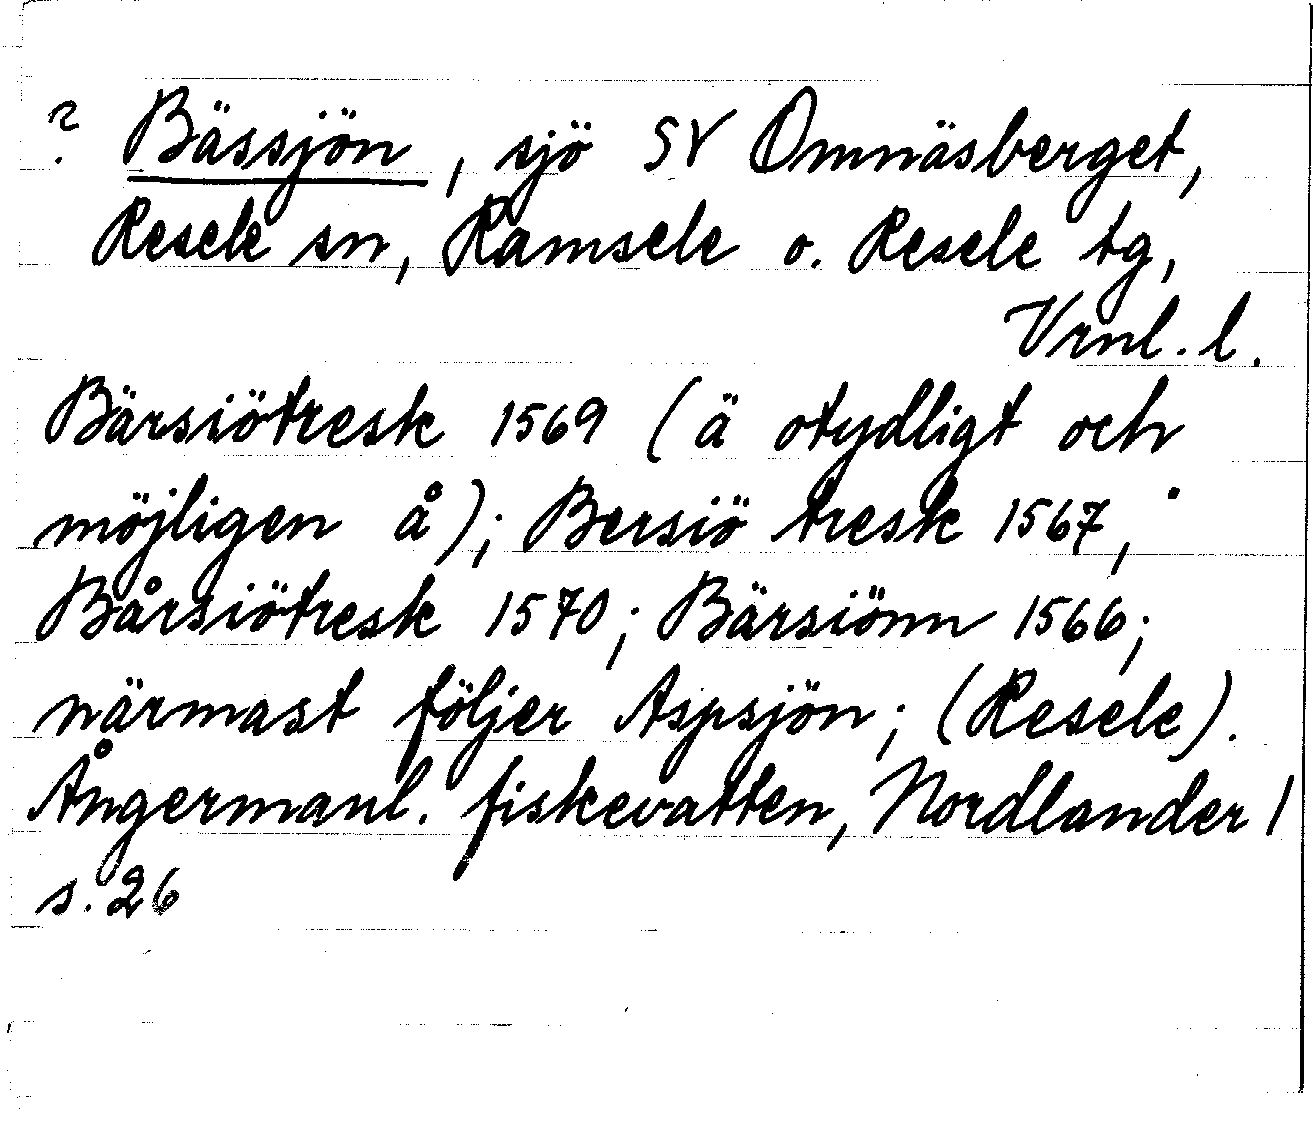 ? Bässjön, sjö SV Omnäsberget,
Resele sn, Ramsele o. Resele tg,
Vrnl. l.
Bärsiötresk 1569 (ä otydligt och
möjligen å); Bersiö tresk 1567,
Bårsiötresk 1570; Bärsiönn 1566;
närmast följer Aspsjön; (Resele).
Ångermanl. fiskevatten, Nordlander I
s. 26